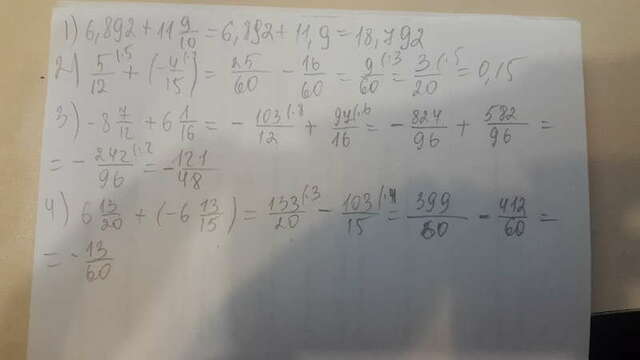 1) 6,892 + 11 9/10 = 6,892 + 11,9 = 18,792
2) 5/12 + (-4/15) = 25/60 - 16/60 = 9/60 = 3/20 = 0,15
3) -8 7/12 + 6 1/16 = - 103/12 + 97/16 = - 824/96 + 582/96 =
= - 242/96 = - 121/48
4) 6 13/20 + (-6 13/15) = 133/20 - 103/15 = 399/60 - 412/60 =
= - 13/60